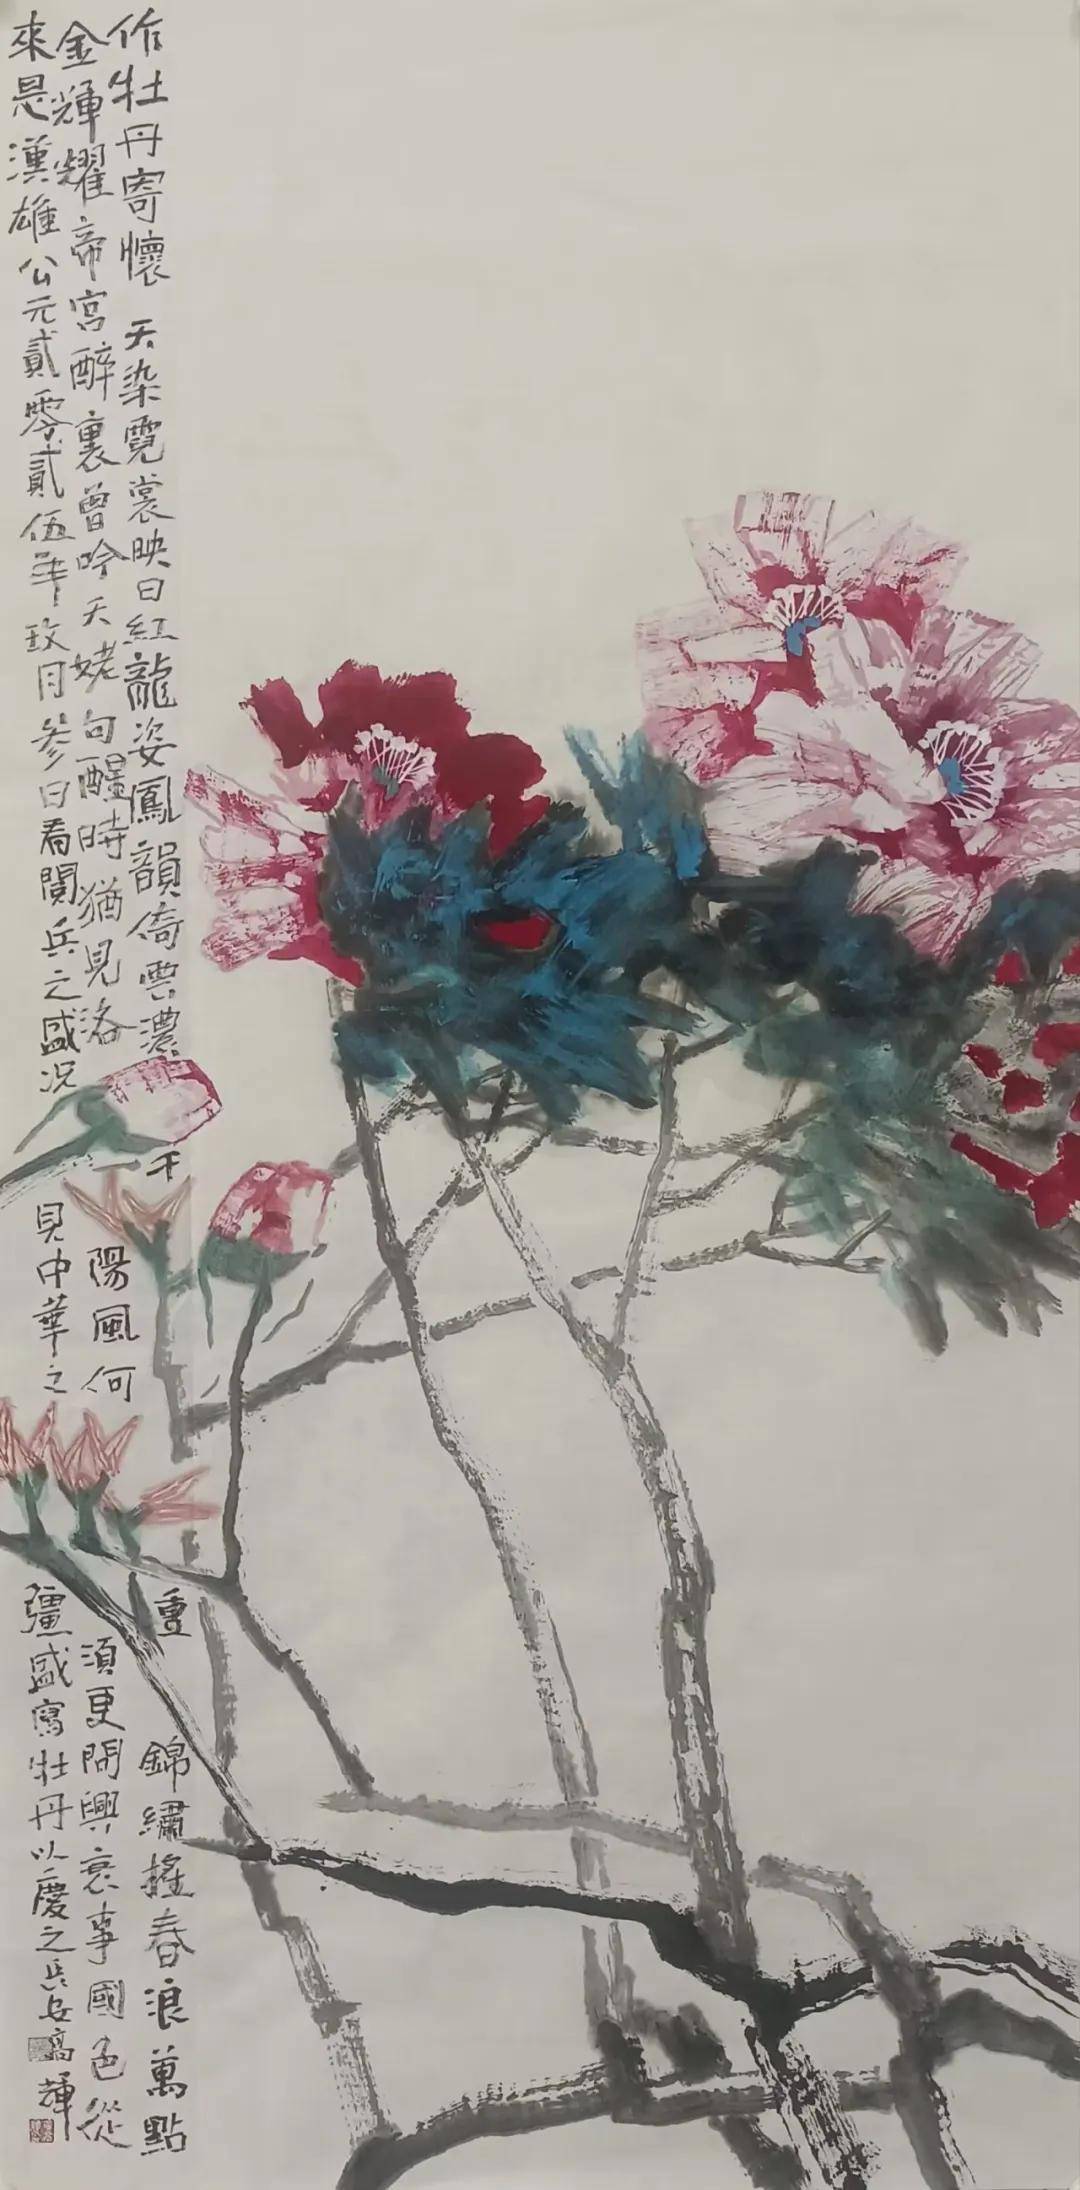 作牡丹寄懷 天染霓裳映日紅龍姿鳳韻倚雲濃千重錦繡搖春浪萬點
金輝耀帝宮醉裏曾吟天姥句醒時猶見洛陽風何須更問興衰事國色從
來是漢雄公元貳零貳伍年玖月參日看閱兵之盛况見中華之彊盛寫牡丹以慶之長安高輝